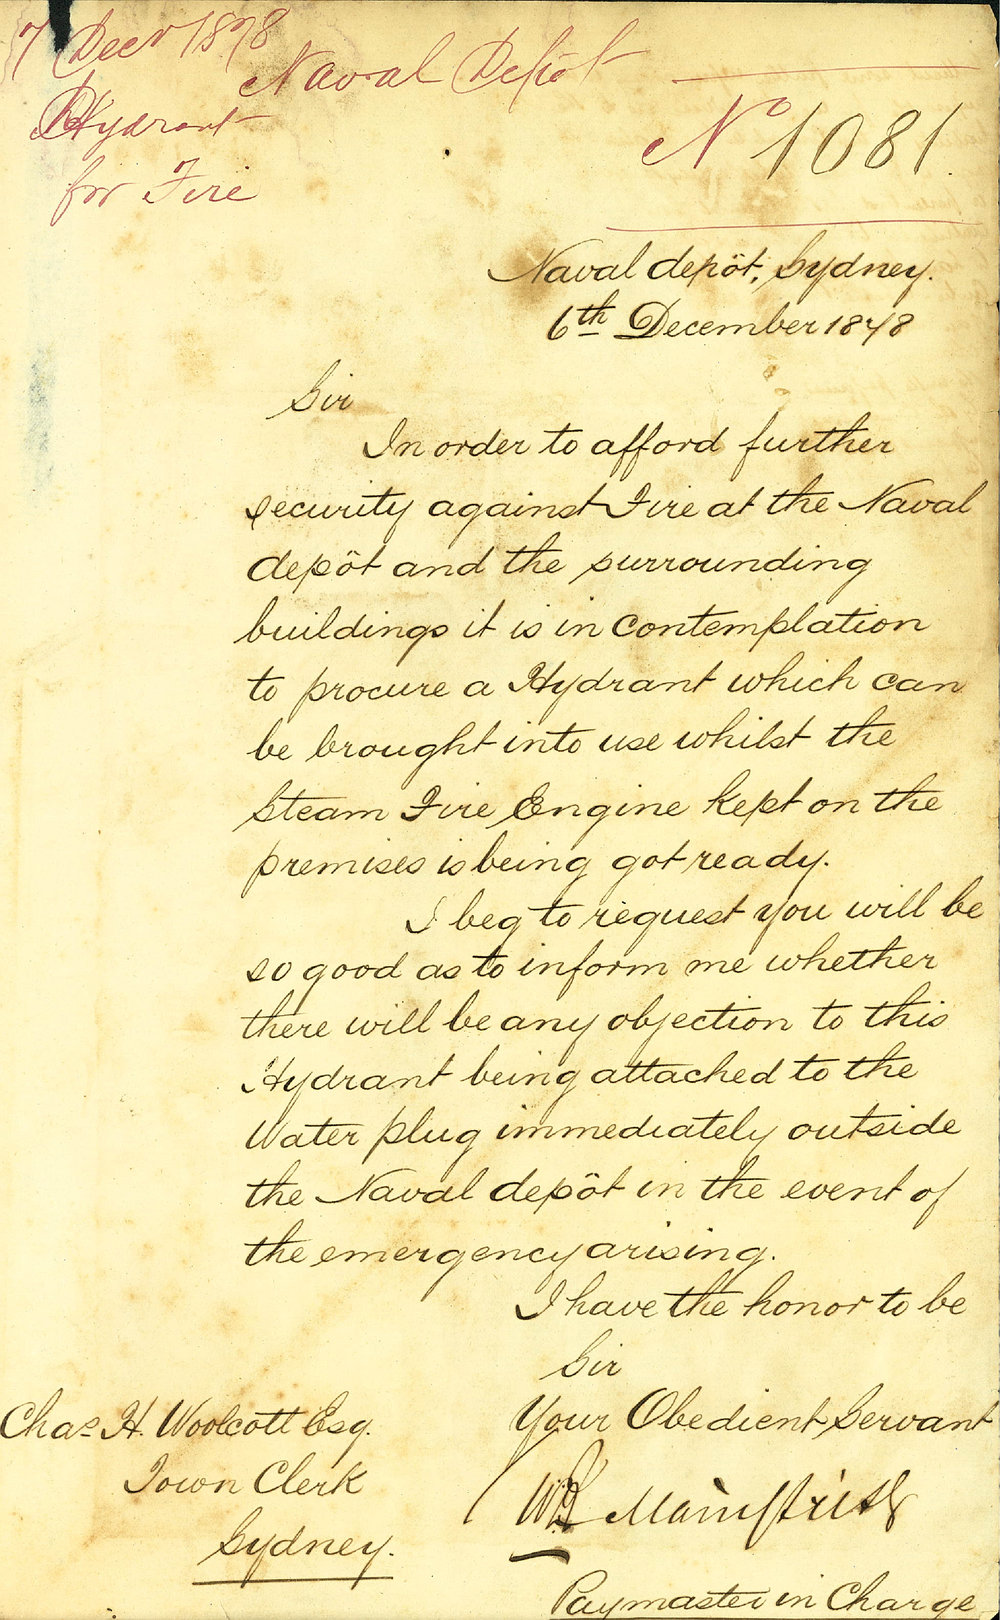 7 Decr 1878
Naval Depôt
Hydrant
for Fire
No 1081.
Naval depôt, Sydney.
6th December 1878
Sir
In order to afford further
security against Fire at the Naval
depôt and the surrounding
buildings it is in contemplation
to procure a Hydrant which can
be brought into use whilst the
Steam Fire Engine kept on the
premises is being got ready.
I beg to request you will be
so good as to inform me whether
there will be any objection to this
Hydrant being attached to the
Water plug immediately outside
the Naval depôt in the event of
the emergency arising.
I have the honor to be
Sir
Your Obedient Servant
Chas. H. Woolcott Esq.
Town Clerk
Sydney.
Paymaster in Charge